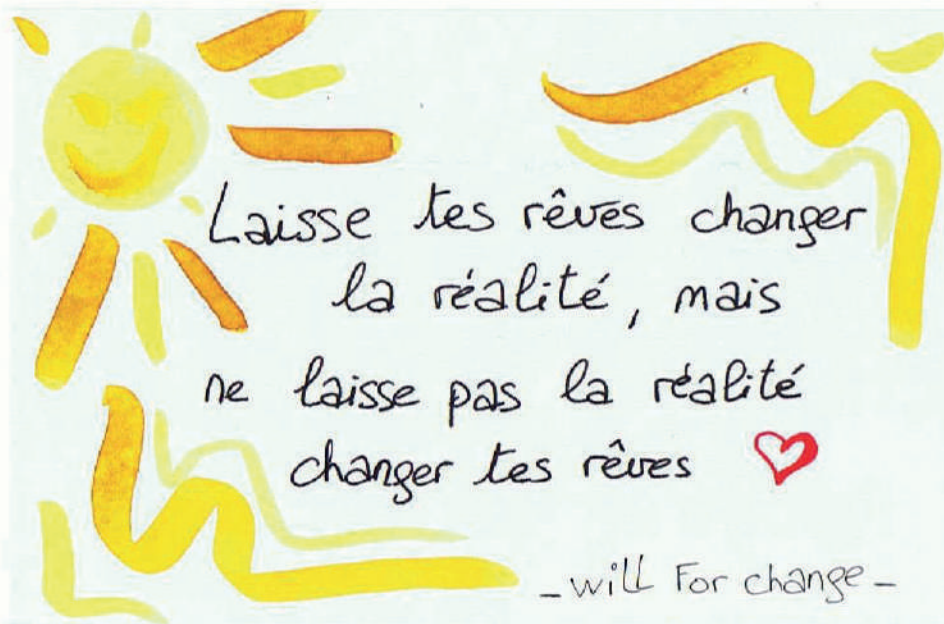 Laisse tes rêves changer
la réalité, mais
ne laisse pas la réalité
changer tes rêves
_will For change_